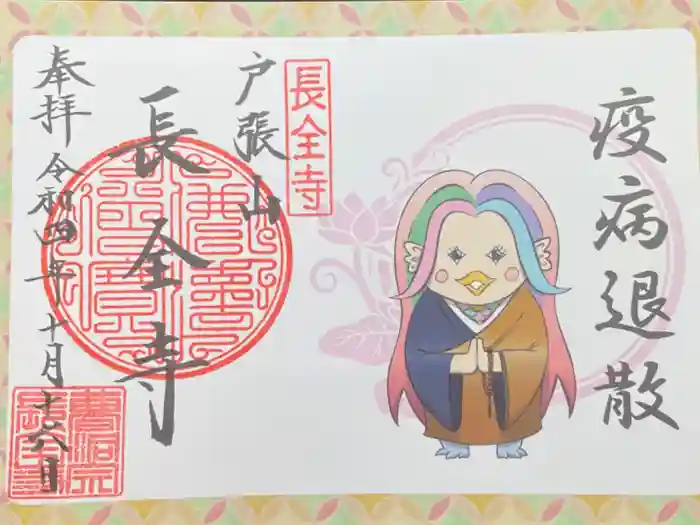 疫病退散
長全寺
戸張山
長全寺
奉拝
令和四年十月十六日